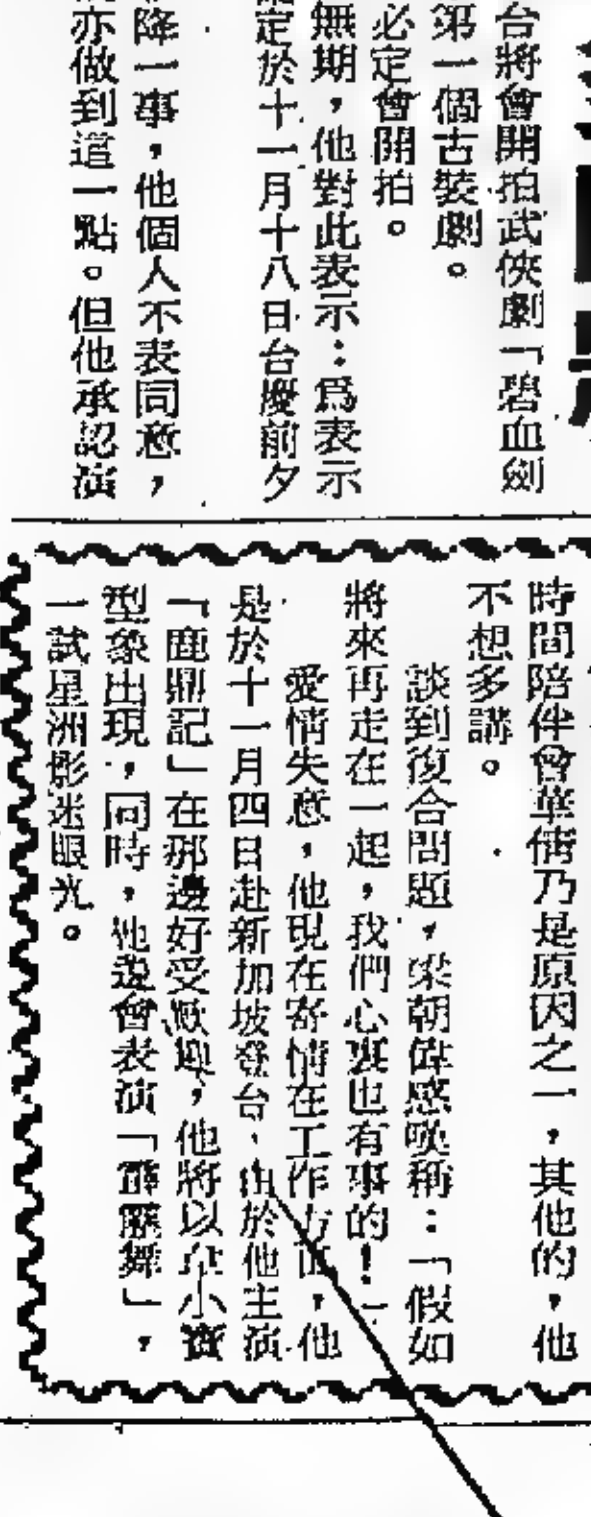 台將會開拍武俠劇「碧血劍
第一個古裝劇。
必定會開拍。
無期，他對此表示：為表示
定於十一月十八日台慶前夕
降一事，他個人不表同意，
亦做到這一點。但他承認演
時間陪伴曾華倩乃是原因之一，其他的，他
不想多講。
談到復合問題，梁朝偉感喚稱：「假如
將來再走在一起，我們心裏也有事的！」
愛情失意，他現在寄情在工作方面，他
是於十一月四日赴新加坡登台，由於他主演
「鹿鼎記」在那邊好受歡迎，他將以韋小寶
型象出現，同時，他還會表演「霹靂舞」，
一試星洲影迷眼光。